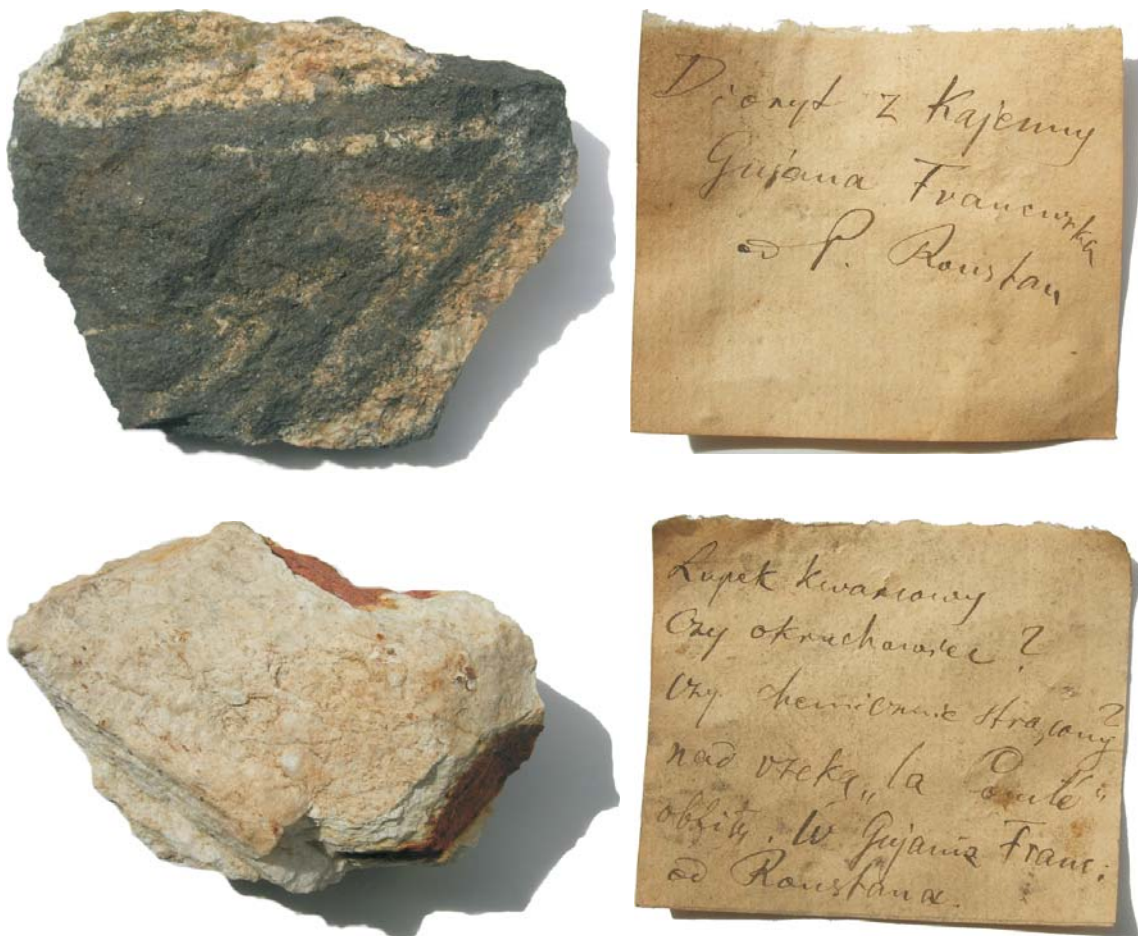 Dioryt z Kajenny
Gujana Francuzka
od P. Roustan
Łupek kwarcowy
Czy okruchowiec ?
czy chemicznie strącony ?
nad rzeką „la Comté"
obfity. W Gujanie Franc:
od Roustana.